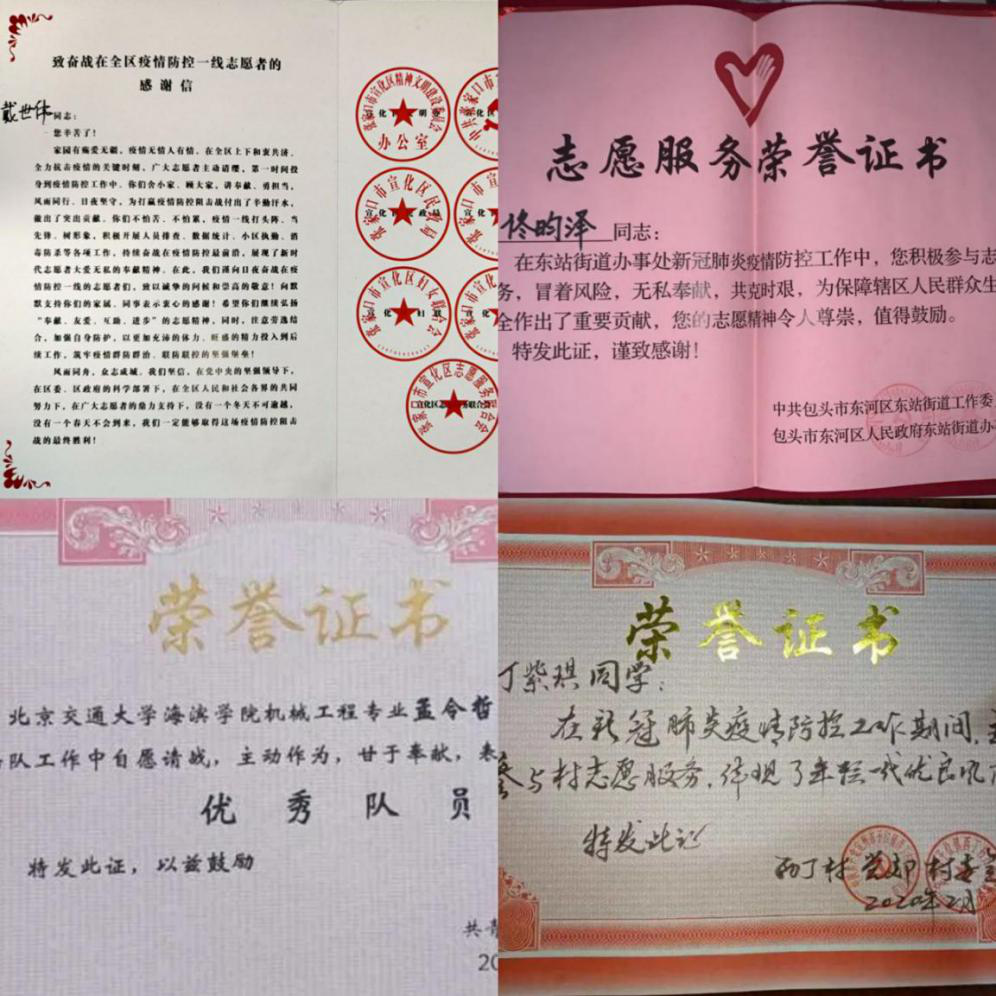 致奋战在全区疫情防控一线志愿者的
感谢信
戴世伟同志:
您辛苦了!
家园有难爱无疆,疫情无情人有情。在全区上下和衷共济、
全力抗击疫情的关键时刻,广大志愿者主动请缨,第一时间投
身到疫情防控工作中。你们舍小家、顾大家,讲奉献、勇担当,
风雨同行、日夜坚守,为打赢疫情防控阻击战付出了辛勤汗水,
做出了突出贡献。你们不怕苦、不怕累,疫情一线打头阵、当
先锋、树形象,积极开展人员排查、数据统计、小区执勤、消
毒防杀等各项工作,持续奋战在疫情防控最前沿,展现了新时
代志愿者大爱无私的奉献精神。在此,我们谨向日夜奋战在疫
情防控一线的志愿者们,致以诚挚的问候和崇高的敬意!向默
默支持你们的家属、同事表示衷心的感谢!希望你们继续弘扬
“奉献、友爱、互助、进步”的志愿精神,同时,注意劳逸结
合,加强自身防护,以更加充沛的体力、旺盛的精力投入到后
续工作,筑牢疫情群防群治、联防联控的坚强堡垒!
风雨同舟,众志成城。我们坚信,在党中央的坚强领导下,
在区委、区政府的科学部署下,在全区人民和社会各界的共同
努力下,在广大志愿者的鼎力支持下,没有一个冬天不可逾越,
没有一个春天不会到来,我们一定能够取得这场疫情防控阻击
战的最终胜利!
张家口市宣化区精神文明建设委员会
办公室
张家口市宣化区民政局
张家口市宣化区妇女联合会
张家口市宣化区志愿服务联合会
志愿服务荣誉证书
佟昀泽同志:
在东站街道办事处新冠肺炎疫情防控工作中,您积极参与志
务,冒着风险,无私奉献,共克时艰,为保障辖区人民群众生
全作出了重要贡献,您的志愿精神令人尊崇,值得鼓励。
特发此证,谨致感谢!
中共包头市东河区东站街道工作委
包头市东河区人民政府东站街道办
荣誉证书
北京交通大学海滨学院机械工程专业孟令哲
队工作中自愿请战,主动作为,甘于奉献,表
优秀队员
特发此证,以兹鼓励
共青
20
荣誉证书
丁紫琪同学:
在新冠肺炎疫情防控工作期间,
参与村志愿服务,体现了年轻一代优良风
特发此证
丁村党支部村委
2020年2月